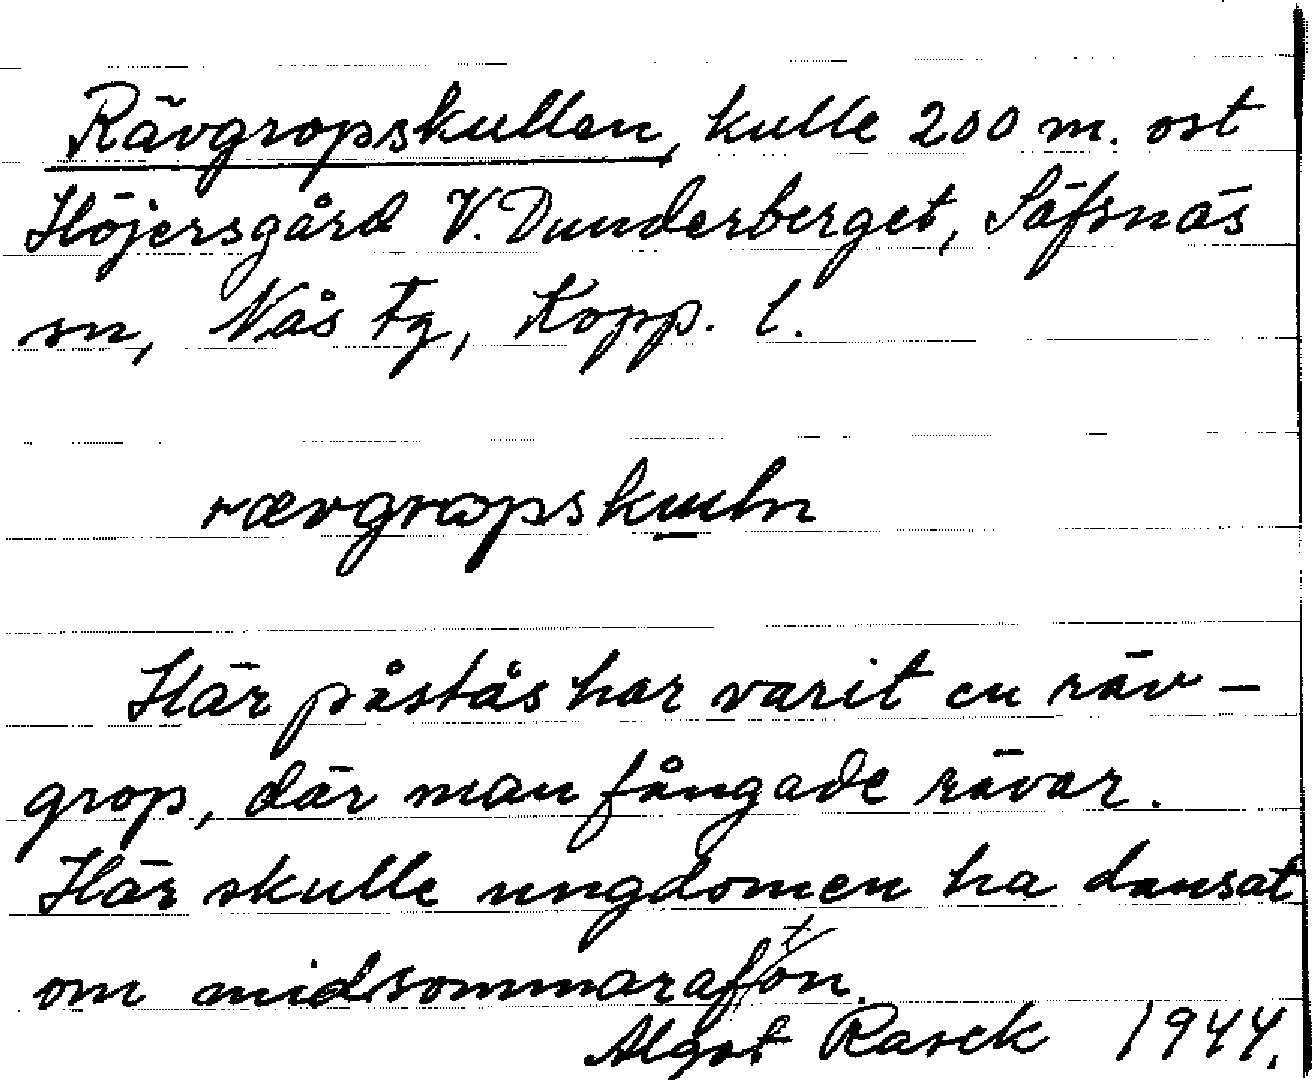 Rävgropskullen, kulle 200 m. ost
Höjersgård V. Dunderberget, Säfsnäs
sn, Nås tg, Kopp. l.
rævgrɷpskuln
Här påstås har varit en räv-
grop, där man fångade rävar.
Här skulle ungdomen ha dansat
om midsommarafton.
Algot Rasck 1944.